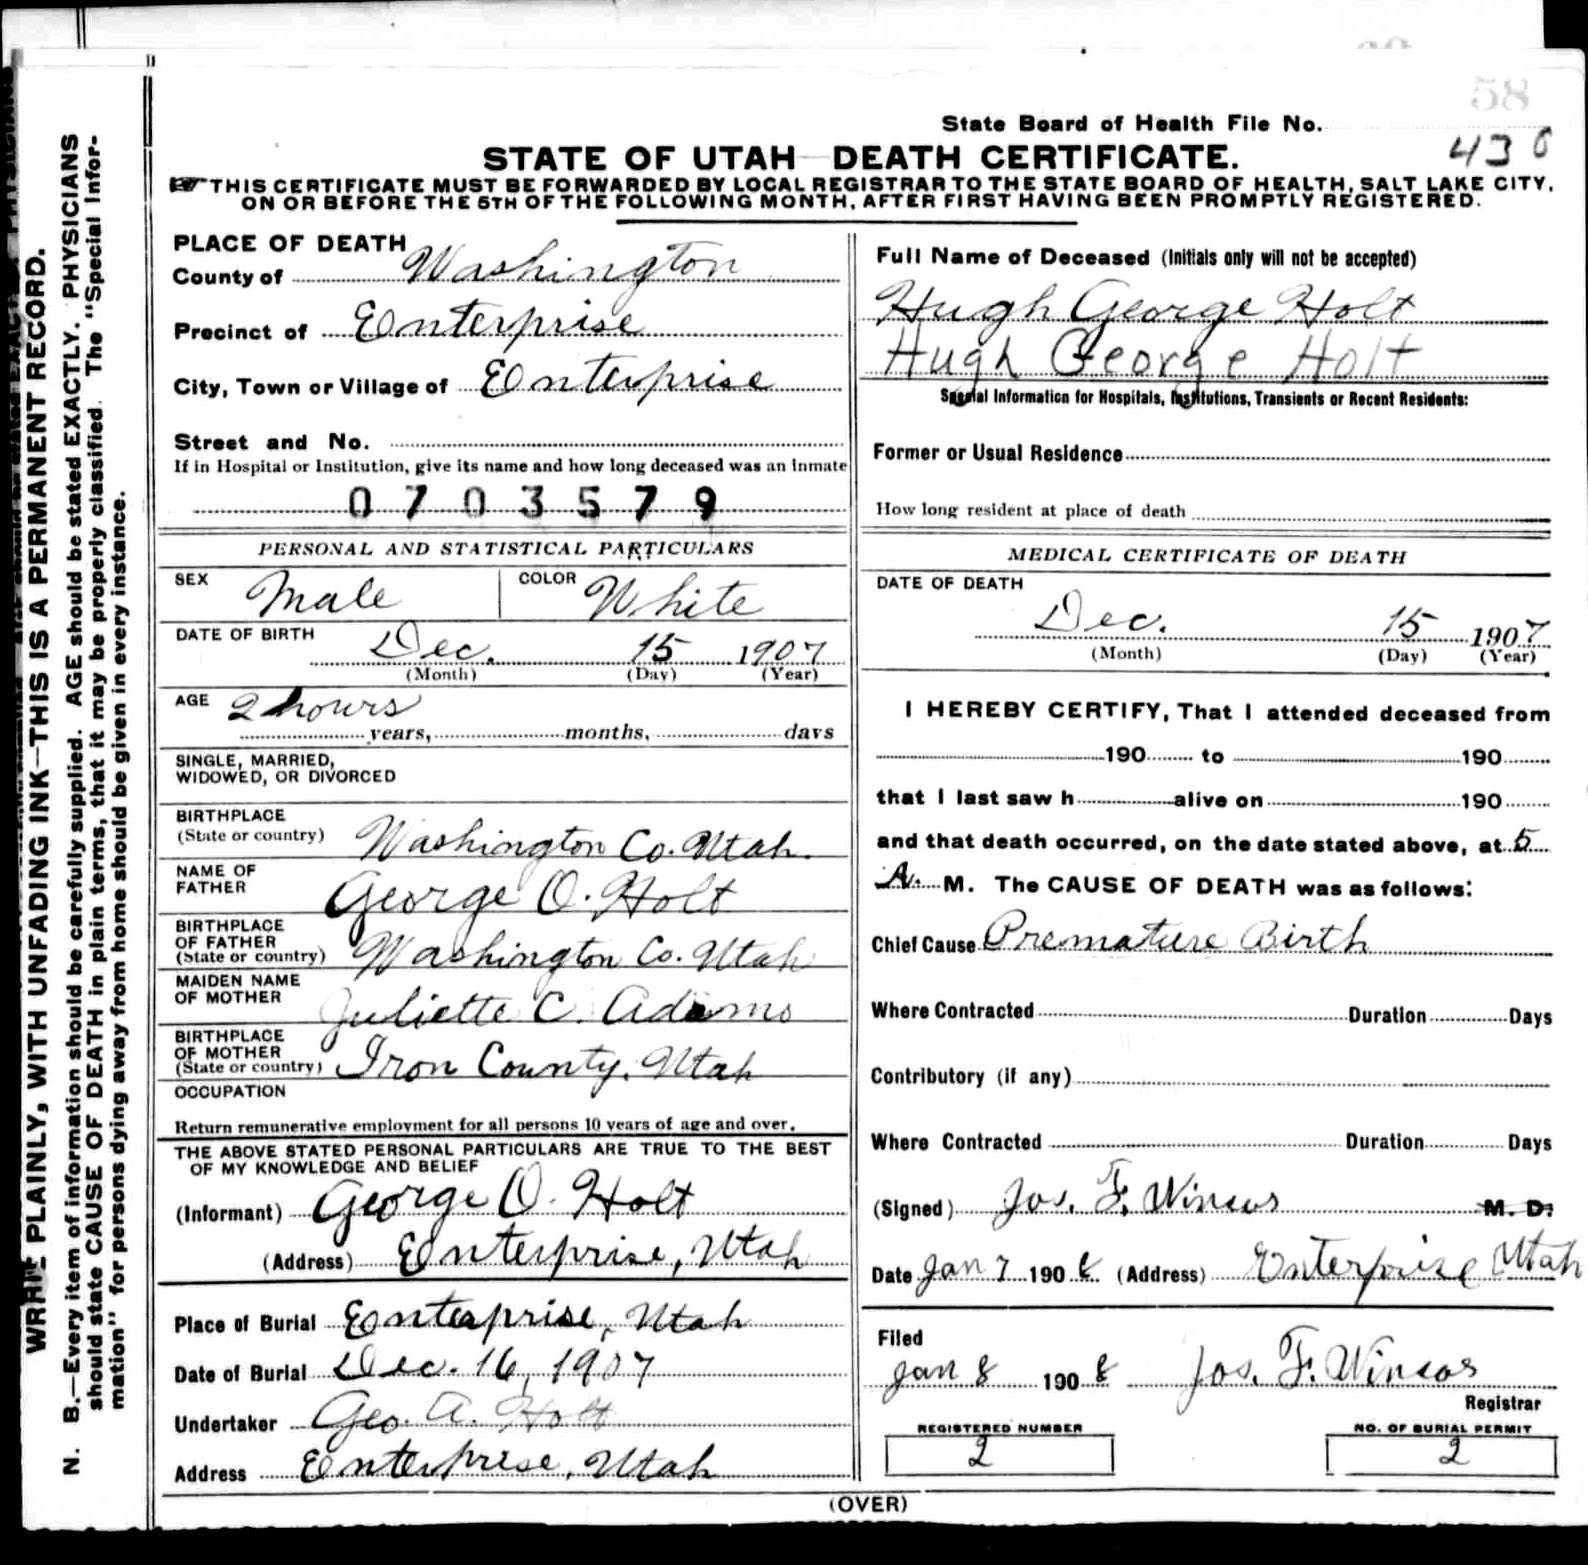 58
State Board of Health File No.
436
STATE OF UTAH—DEATH CERTIFICATE.
THIS CERTIFICATE MUST BE FORWARDED BY LOCAL REGISTRAR TO THE STATE BOARD OF HEALTH, SALT LAKE CITY,
ON OR BEFORE THE 5TH OF THE FOLLOWING MONTH, AFTER FIRST HAVING BEEN PROMPTLY REGISTERED.
WRITE PLAINLY, WITH UNFADING INK—THIS IS A PERMANENT RECORD.
N. B.—Every item of information should be carefully supplied. AGE should be stated EXACTLY. PHYSICIANS
should state CAUSE OF DEATH in plain terms, that it may be properly classified. The "Special Infor-
mation" for persons dying away from home should be given in every instance.
PLACE OF DEATH
County of Washington
Precinct of Enterprise
City, Town or Village of Enterprise
Street and No.
If in Hospital or Institution, give its name and how long deceased was an inmate
0703579
PERSONAL AND STATISTICAL PARTICULARS
SEX Male COLOR White
DATE OF BIRTH Dec. 15 1907
(Month) (Day) (Year)
AGE 2 hours
years, months, days
SINGLE, MARRIED,
WIDOWED, OR DIVORCED
BIRTHPLACE
(State or country) Washington Co. Utah.
NAME OF
FATHER George O. Holt
BIRTHPLACE
OF FATHER
(State or country) Washington Co. Utah
MAIDEN NAME
OF MOTHER Juliette C. Adams
BIRTHPLACE
OF MOTHER
(State or country) Iron County, Utah
OCCUPATION
Return remunerative employment for all persons 10 years of age and over.
THE ABOVE STATED PERSONAL PARTICULARS ARE TRUE TO THE BEST
OF MY KNOWLEDGE AND BELIEF
(Informant) George O. Holt
(Address) Enterprise, Utah
Place of Burial Enterprise, Utah
Date of Burial Dec. 16, 1907
Undertaker Geo. A. Holt
Address Enterprise, Utah
Full Name of Deceased (Initials only will not be accepted)
Hugh George Holt
Hugh George Holt
Special Information for Hospitals, Institutions, Transients or Recent Residents:
Former or Usual Residence
How long resident at place of death
MEDICAL CERTIFICATE OF DEATH
DATE OF DEATH
Dec. 15 1907
(Month) (Day) (Year)
I HEREBY CERTIFY, That I attended deceased from
190 to 190
that I last saw h alive on 190
and that death occurred, on the date stated above, at 5
A. M. The CAUSE OF DEATH was as follows:
Chief Cause Premature Birth
Where Contracted Duration Days
Contributory (if any)
Where Contracted Duration Days
(Signed) Jos. F. Winsor M. D.
Date Jan 7 1908 (Address) Enterprise Utah
Filed
Jan 8 1908 Jos. F. Winsor
Registrar
REGISTERED NUMBER
2
NO. OF BURIAL PERMIT
2
(OVER)